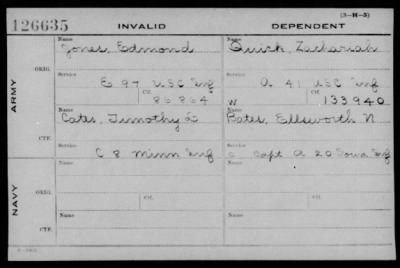 (3-H-3)
126635 INVALID DEPENDENT
Name Name
Jones, Edmond Quick, Zachariah
ORIG.
Service Service
E 97 USC Inf A 41 USC Inf
Ctf. Ctf.
86864 W 133940
ARMY
Name Name
Cates, Timothy L Bates, Ellsworth N
CTF.
Service Service
C 8 Minn Inf C Capt A 20 Iowa Inf
Name Name
ORIG.
Service Ctf. Service Ctf.
NAVY
Name Name
CTF.